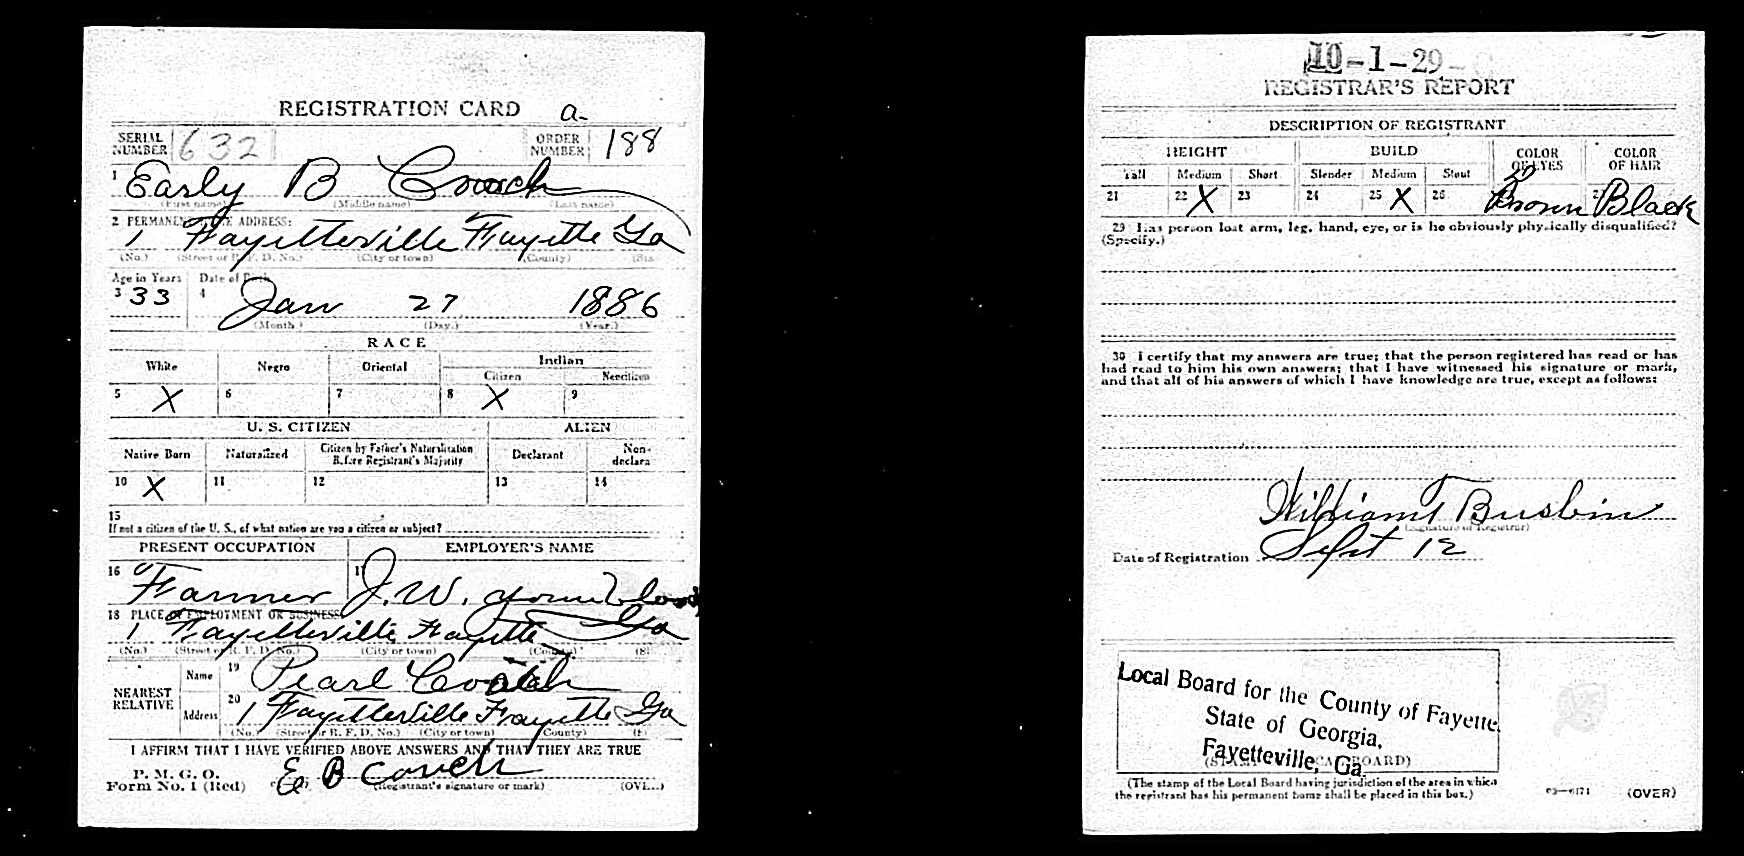 REGISTRATION CARD a-
SERIAL NUMBER 632 ORDER NUMBER 188
1 Early B Couch
(First name) (Middle name) (Last name)
2 PERMANENT HOME ADDRESS:
1 Fayetteville Fayette Ga
(No.) (Street or R. F. D. No.) (City or town) (County)
Age in Years Date of Birth
3 33 4 Jan 27 1886
(Month.) (Day.) (Year.)
RACE
White Negro Oriental Indian
Citizen Noncitizen
5 X 6 7 8 X 9
U. S. CITIZEN ALIEN
Native Born Naturalized Citizen by Father's Naturalization Before Registrant's Majority Declarant Non-declara
10 X 11 12 13 14
15
If not a citizen of the U. S., of what nation are you a citizen or subject?
PRESENT OCCUPATION EMPLOYER'S NAME
16 Farmer 17 J. W. Youngblood
18 PLACE OF EMPLOYMENT OR BUSINESS
1 Fayetteville Fayette Ga
(No.) (Street or R. F. D. No.) (City or town) (County)
NEAREST RELATIVE Name 19 Pearl Couch
Address 20 1 Fayetteville Fayette Ga
(No.) (Street or R. F. D. No.) (City or town) (County)
I AFFIRM THAT I HAVE VERIFIED ABOVE ANSWERS AND THAT THEY ARE TRUE
P. M. G. O.
Form No. 1 (Red) E B Couch
(Registrant's signature or mark) (OVER)
10-1-29-C
REGISTRAR'S REPORT
DESCRIPTION OF REGISTRANT
HEIGHT BUILD COLOR OF EYES COLOR OF HAIR
Tall Medium Short Slender Medium Stout
21 22 X 23 24 25 X 26 Brown Black
29 Has person lost arm, leg, hand, eye, or is he obviously physically disqualified?
(Specify.)
30 I certify that my answers are true; that the person registered has read or has
had read to him his own answers; that I have witnessed his signature or mark,
and that all of his answers of which I have knowledge are true, except as follows:
William T Busbin
(Signature of Registrar)
Date of Registration Sept 12
Local Board for the County of Fayette,
State of Georgia,
Fayetteville, Ga.
(The stamp of the Local Board having jurisdiction of the area in which
the registrant has his permanent home shall be placed in this box.)
03—6171 (OVER)